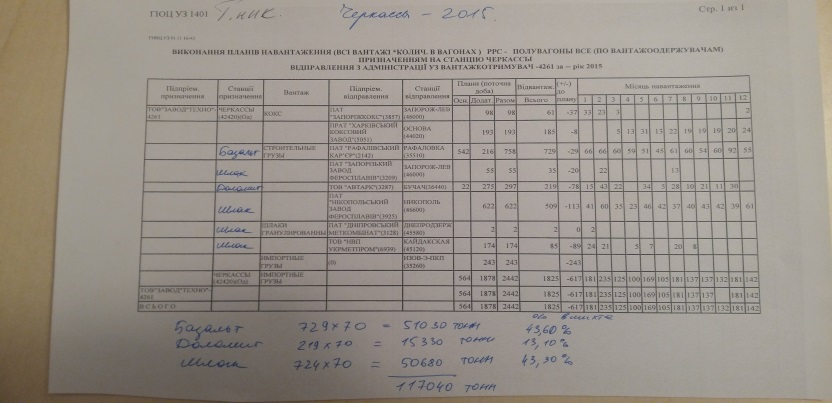 ГІОЦ УЗ 1401 Т.ник. Черкассы – 2015. Стр. 1 из 1
ВИКОНАННЯ ПЛАНІВ НАВАНТАЖЕННЯ (ВСІ ВАНТАЖІ *КОЛИЧ. В ВАГОНАХ ) РРС - ПОЛУВАГОНЫ ВСЕ (ПО ВАНТАЖООДЕРЖУВАЧАМ)
ПРИЗНАЧЕННЯМ НА СТАНЦІЮ ЧЕРКАССЫ
ВІДПРАВЛЕННЯ З АДМІНІСТРАЦІЇ УЗ ВАНТАЖЕОТРИМУВАЧ -4261 за -- рік 2015
Підприєм. призначення Станції призначення Вантаж Підприєм. відправлення Станції відправлення Плани (поточна доба) Відвантаж. (+/-) до плану Місяць навантаження
Осн. Додат Разом Всього 1 2 3 4 5 6 7 8 9 10 11 12
ТОВ"ЗАВОД"ТЕХНО"- 4261 ЧЕРКАССЫ (42420)(Од) КОКС ПАТ "ЗАПОРІЖКОКС"(3857) ЗАПОРОЖ-ЛЕВ (46000) 98 98 61 -37 33 23 3 2
ПРАТ "ХАРКІВСЬКИЙ КОКСОВИЙ ЗАВОД"(5051) ОСНОВА (44020) 193 193 185 -8 5 13 31 13 22 19 19 19 20 24
Базальт СТРОИТЕЛЬНЫЕ ГРУЗЫ ПАТ "РАФАЛІВСЬКИЙ КАР"ЄР"(2142) РАФАЛОВКА (35510) 542 216 758 729 -29 66 66 60 59 51 45 61 60 54 60 92 55
Шлак ПАТ "ЗАПОРІЗЬКИЙ ЗАВОД ФЕРОСПЛАВІВ"(3209) ЗАПОРОЖ-ЛЕВ (46000) 55 55 35 -20 22 13
Доломит ТОВ "АВТАРК"(3287) БУЧАЧ(36440) 22 275 297 219 -78 15 43 22 34 5 28 10 21 11 30
Шлак ПАТ "НІКОПОЛЬСЬКИЙ ЗАВОД ФЕРОСПЛАВІВ"(3925) НИКОПОЛЬ (46600) 622 622 509 -113 41 60 35 23 46 42 37 40 43 42 39 61
Шлак ШЛАКИ ГРАНУЛИРОВАННЫ ПАТ "ДНІПРОВСЬКИЙ МЕТКОМБІНАТ"(3128) ДНЕПРОДЗЕРЖ (45580) 2 2 2 0 2
Шлак ТОВ "НВП УКРМЕТПРОМ"(6939) КАЙДАКСКАЯ (45120) 174 174 85 -89 24 21 5 7 20 8
ИМПОРТНЫЕ ГРУЗЫ (0) ИЗОВ-Э-ПКП (35260) 243 243 -243
ЧЕРКАССЫ (42420)(Од) ИМПОРТНЫЕ ГРУЗЫ 564 1878 2442 1825 -617 181 235 125 100 169 105 181 137 137 132 181 142
ТОВ"ЗАВОД"ТЕХНО"- 4261 564 1878 2442 1825 -617 181 235 125 100 169 105 181 137 137 181 142
ВСЬОГО 564 1878 2442 1825 -617 181 235 125 100 169 105 181 137 137 132 181 142
Базальт 729х70 = 51030 тонн 43,60 %
Доломит 219х70 = 15330 тонн 13,10 %
Шлак 724х70 = 50680 тонн 43,30 %
117040 тонн